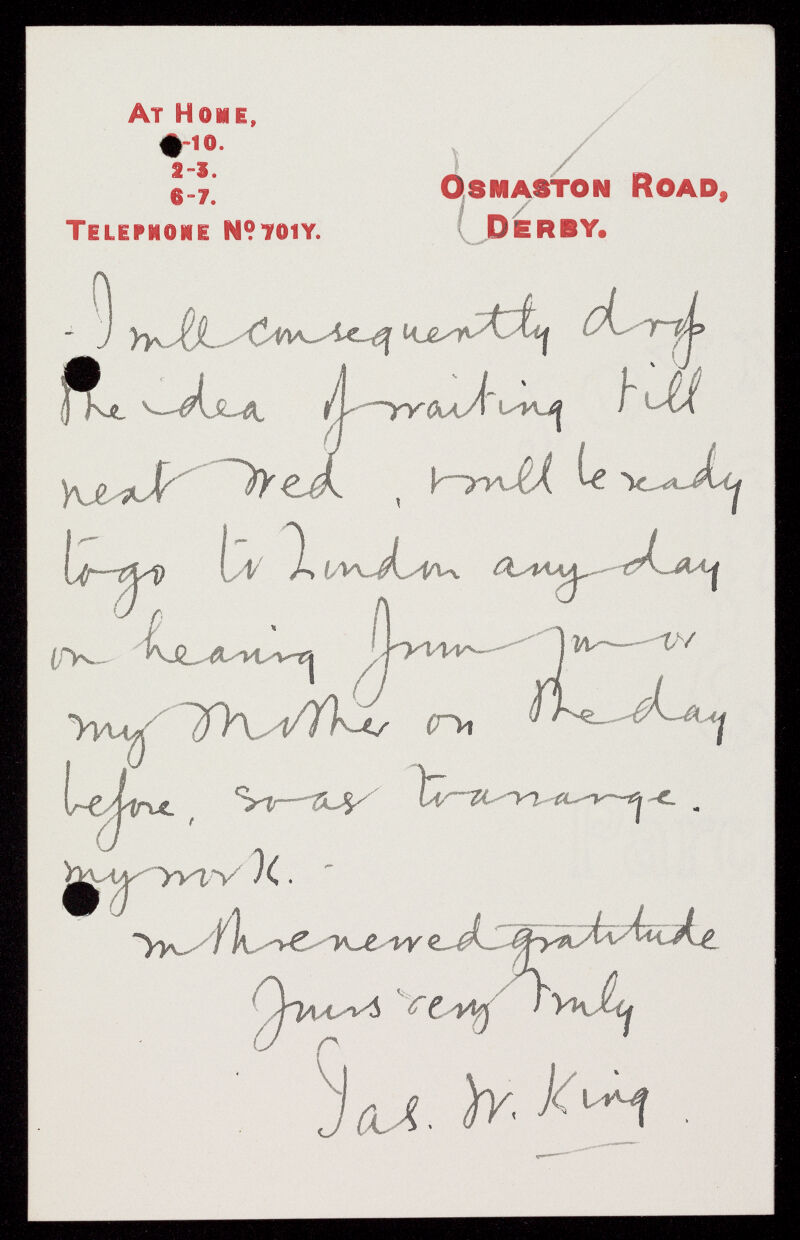 AT HOME,
-10.
2-3.
6-7.
TELEPHONE No. 701Y.
OSMASTON ROAD,
DERBY.
- I will consequently drop
the idea of waiting till
next Wed, & will be ready
to go to London any day
on hearing from you or
my Mother on the day
before, so as to arrange.
my work. -
With renewed gratitude
Yours very truly
Jas. W. King.